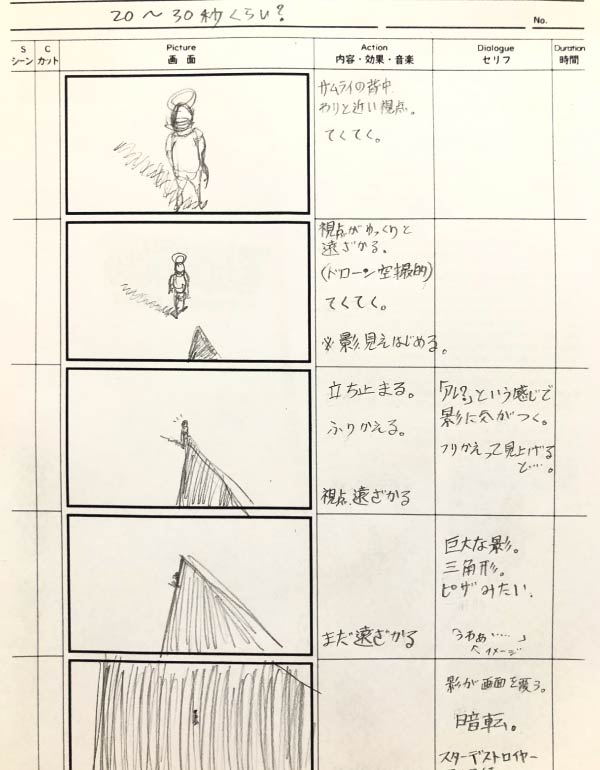 20〜30秒くらい?
No.
S シーン
C カット
Picture 画面
Action 内容・効果・音楽
Dialogue セリフ
Duration 時間
サムライの背中
わりと近い視点。
てくてく。
視点がゆっくりと
遠ざかる。
(ドローン空撮的)
てくてく。
※影見えはじめる。
立ち止まる。
ふりかえる。
視点遠ざかる
「アレ?」という感じで
影に気がつく。
フリかえって見上げる
と…。
まだ遠ざかる
巨大な影。
三角形。
ピザみたい.
「うわぁ……」
↖イメージ
影が画面を覆う。
暗転。
スターデストロイヤー